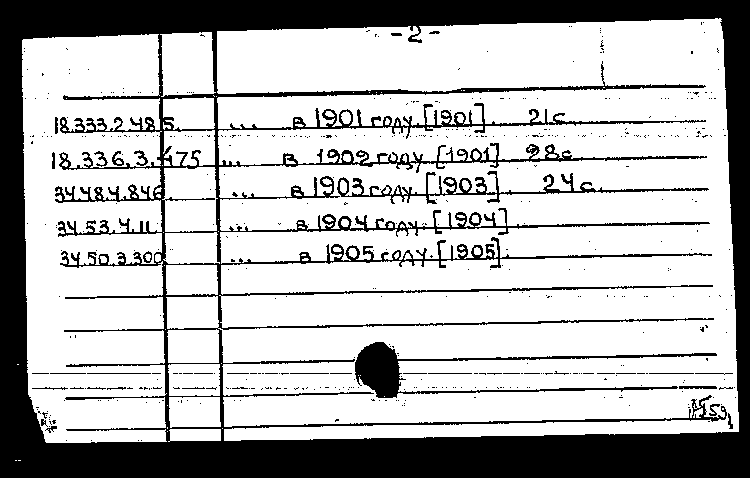 - 2 -
18.333.2.485. ... в 1901 году. [1901]. 21с.
18.336.3.475 ... в 1902 году. [1901] 28с.
34.484.846. ... в 1903 году. [1903]. 24с.
34.53.4.11 ... в 1904 году. [1904]
34.50.3.300 ... в 1905 году. [1905].